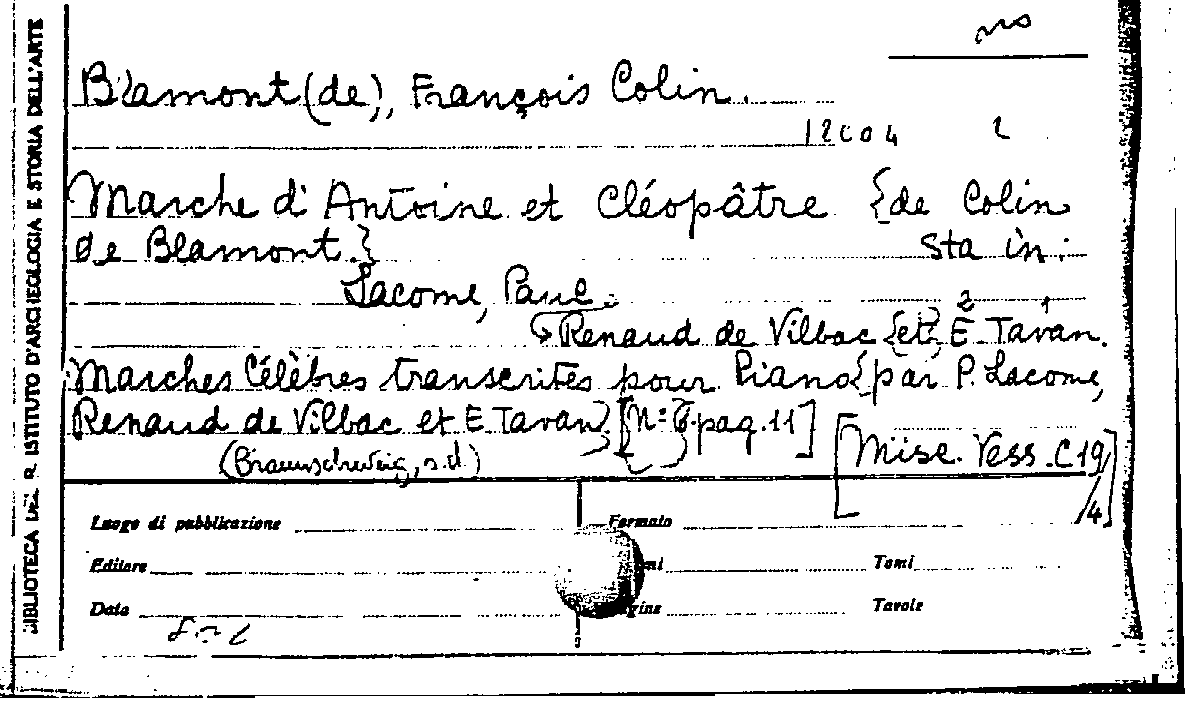 BIBLIOTECA DEL R. ISTITUTO D'ARCHEOLOGIA E STORIA DELL'ARTE
Blamont (de), François Colin.
12004
Marche d'Antoine et Cléopâtre {de Colin
de Blamont.} Sta in:
Lacome, Paul.
2 1
Renaud de Vilbac {et} E Tavan.
Marches Célèbres transcrites pour Piano {par P. Lacome,
Renaud de Vilbac et E Tavan} [N° 6 pag. 11]
(Braunschweig, s.d.) [Misc. Vess. C 19
/4]
Luogo di pubblicazione Formato
Editore Tomi
Data Tavole